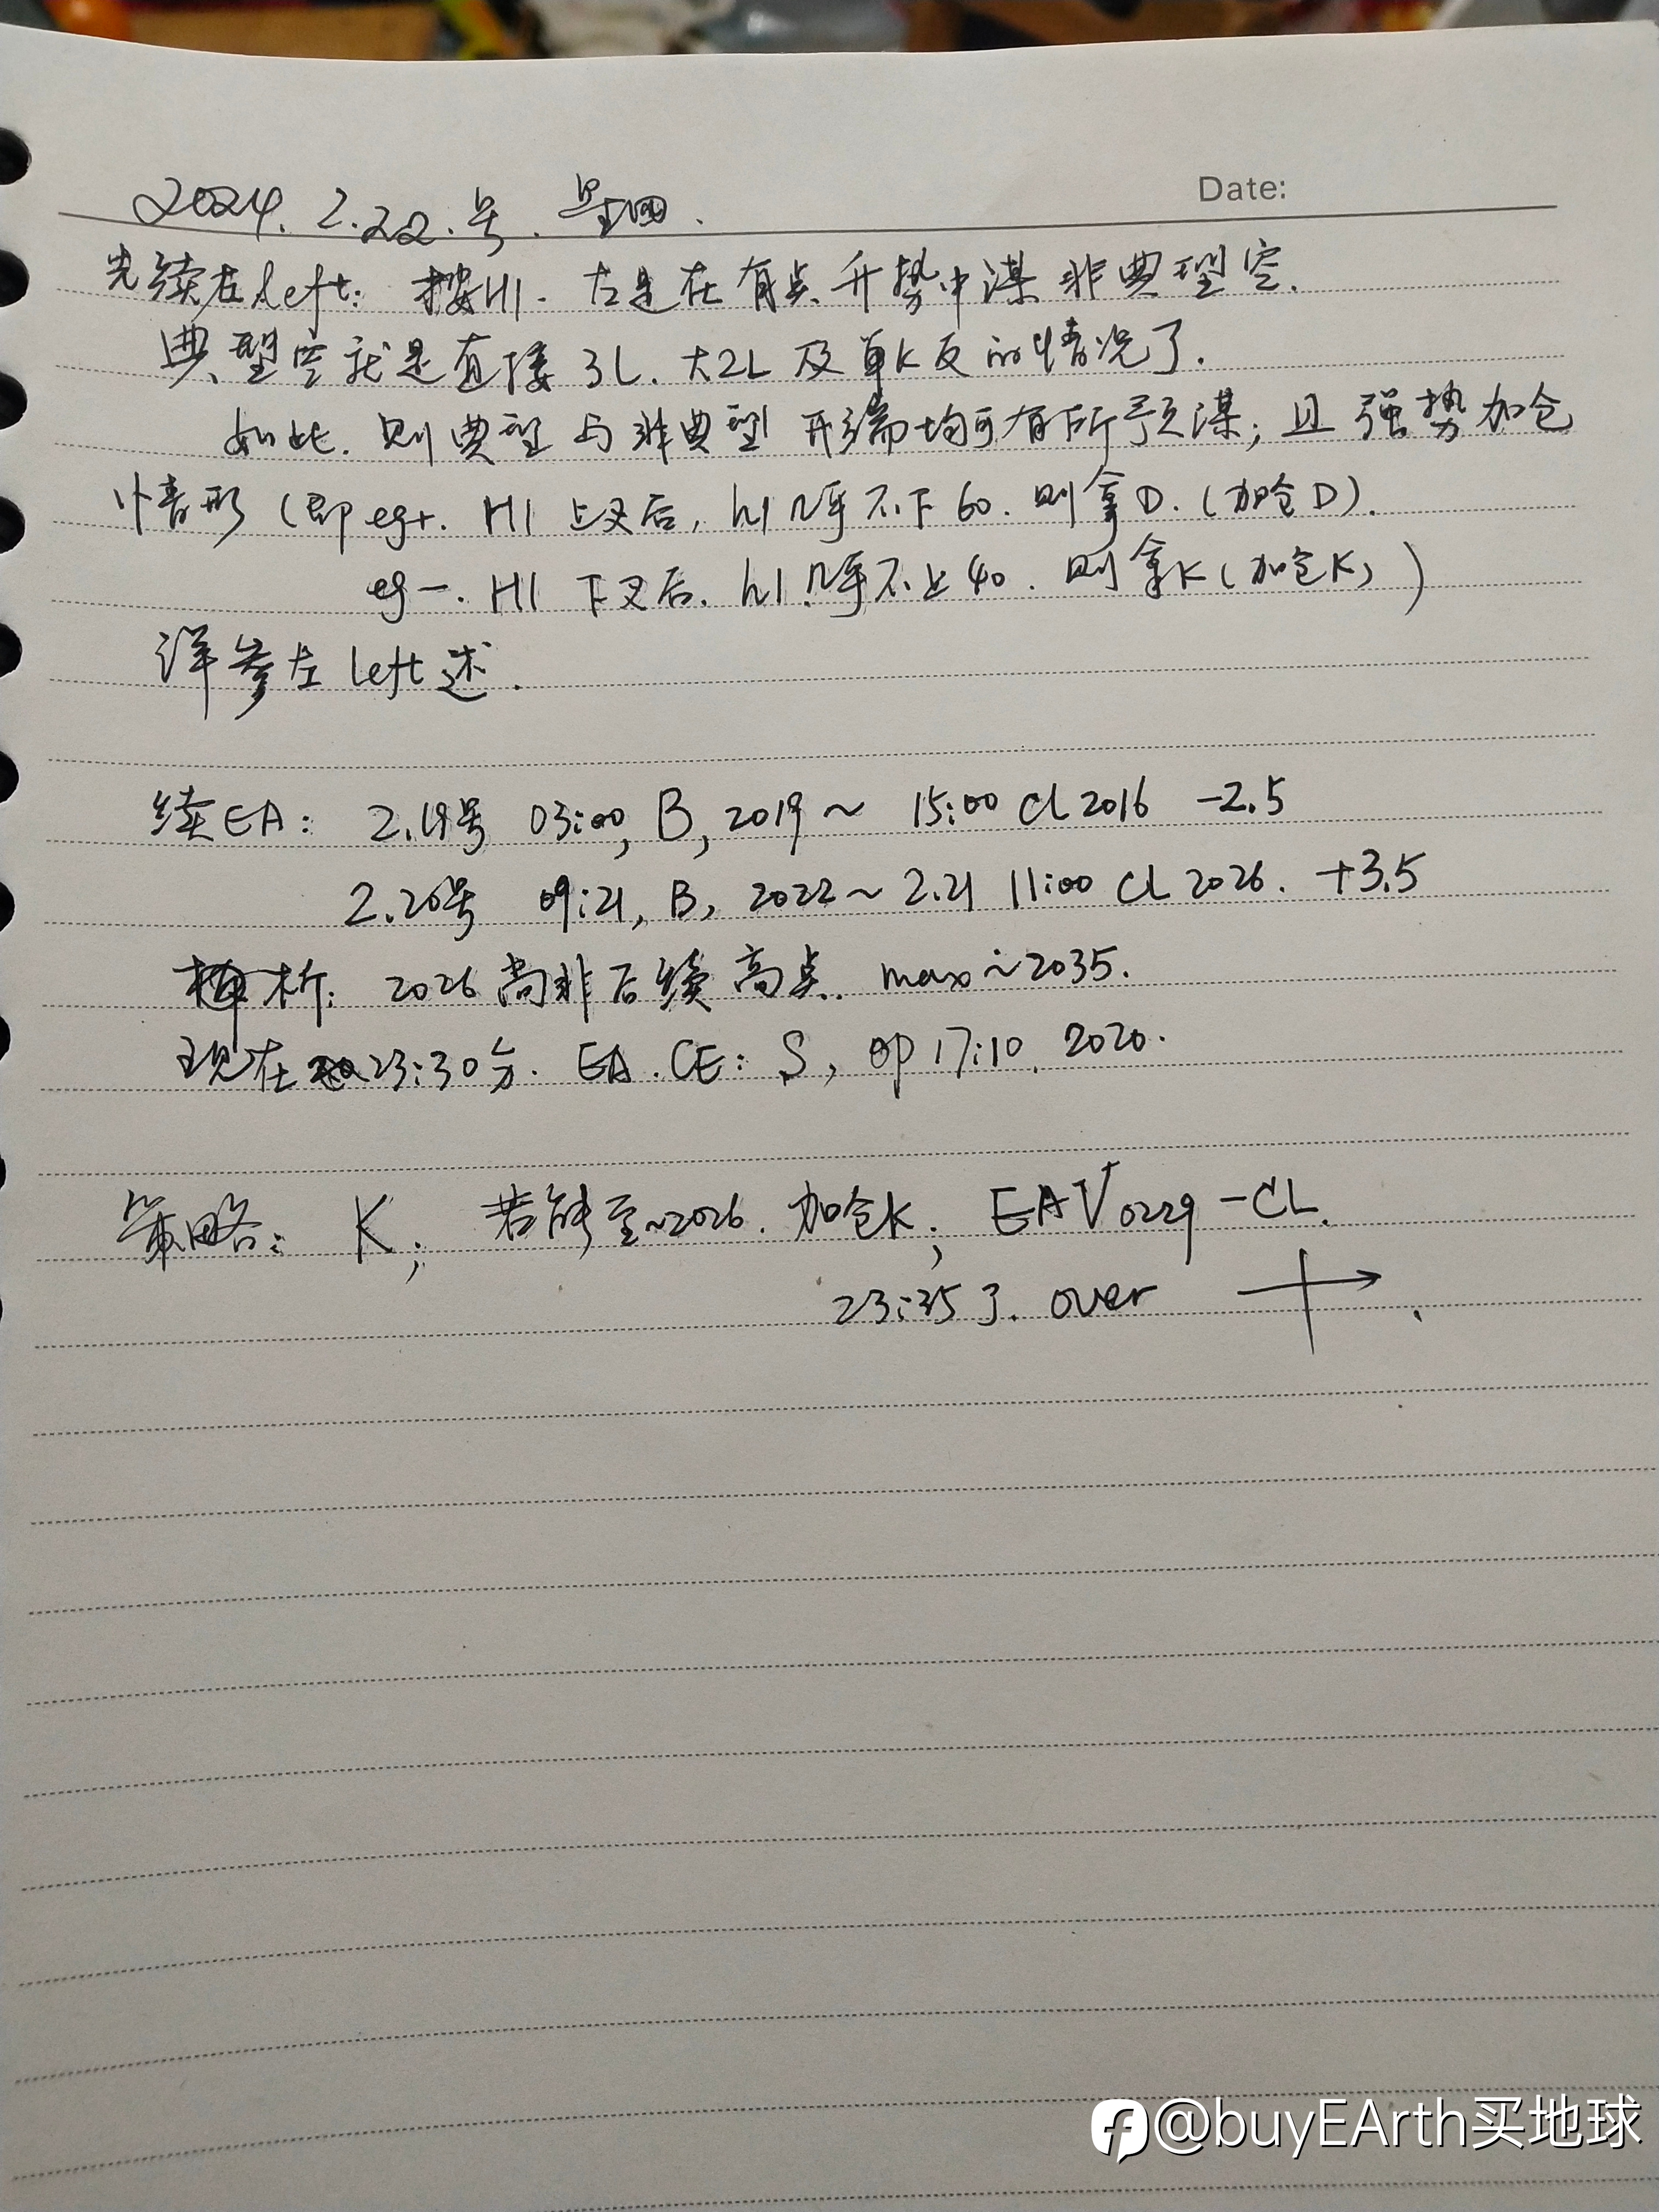 Date:
2024. 2.22.号. 星四.
先续左left: 按H1. 左是在有点升势中谋非典型空.
典型空就是直接3L. 大2L及单K反的情况了.
如此. 则典型与非典型开端均可有所预谋; 且强势加仓
情形 (即eg+. H1上叉后, h1几乎不下60. 则拿D. (加仓D).
eg-. H1下叉后. h1几乎不上40. 则拿K (加仓K) )
详参左left述.
续EA: 2.19号 03:00, B, 2019~ 15:00 CL 2016 -2.5
2.20号 09:21, B, 2022~ 2.21 11:00 CL 2026. +3.5
析: 2026尚非后续高点. max~2035.
现在23:30分. EA. CE: S, op 17:10. 2020.
策略: K; 若能至~2026. 加仓K; EAV0229-CL.
23:35了. over
@buyEArth买地球